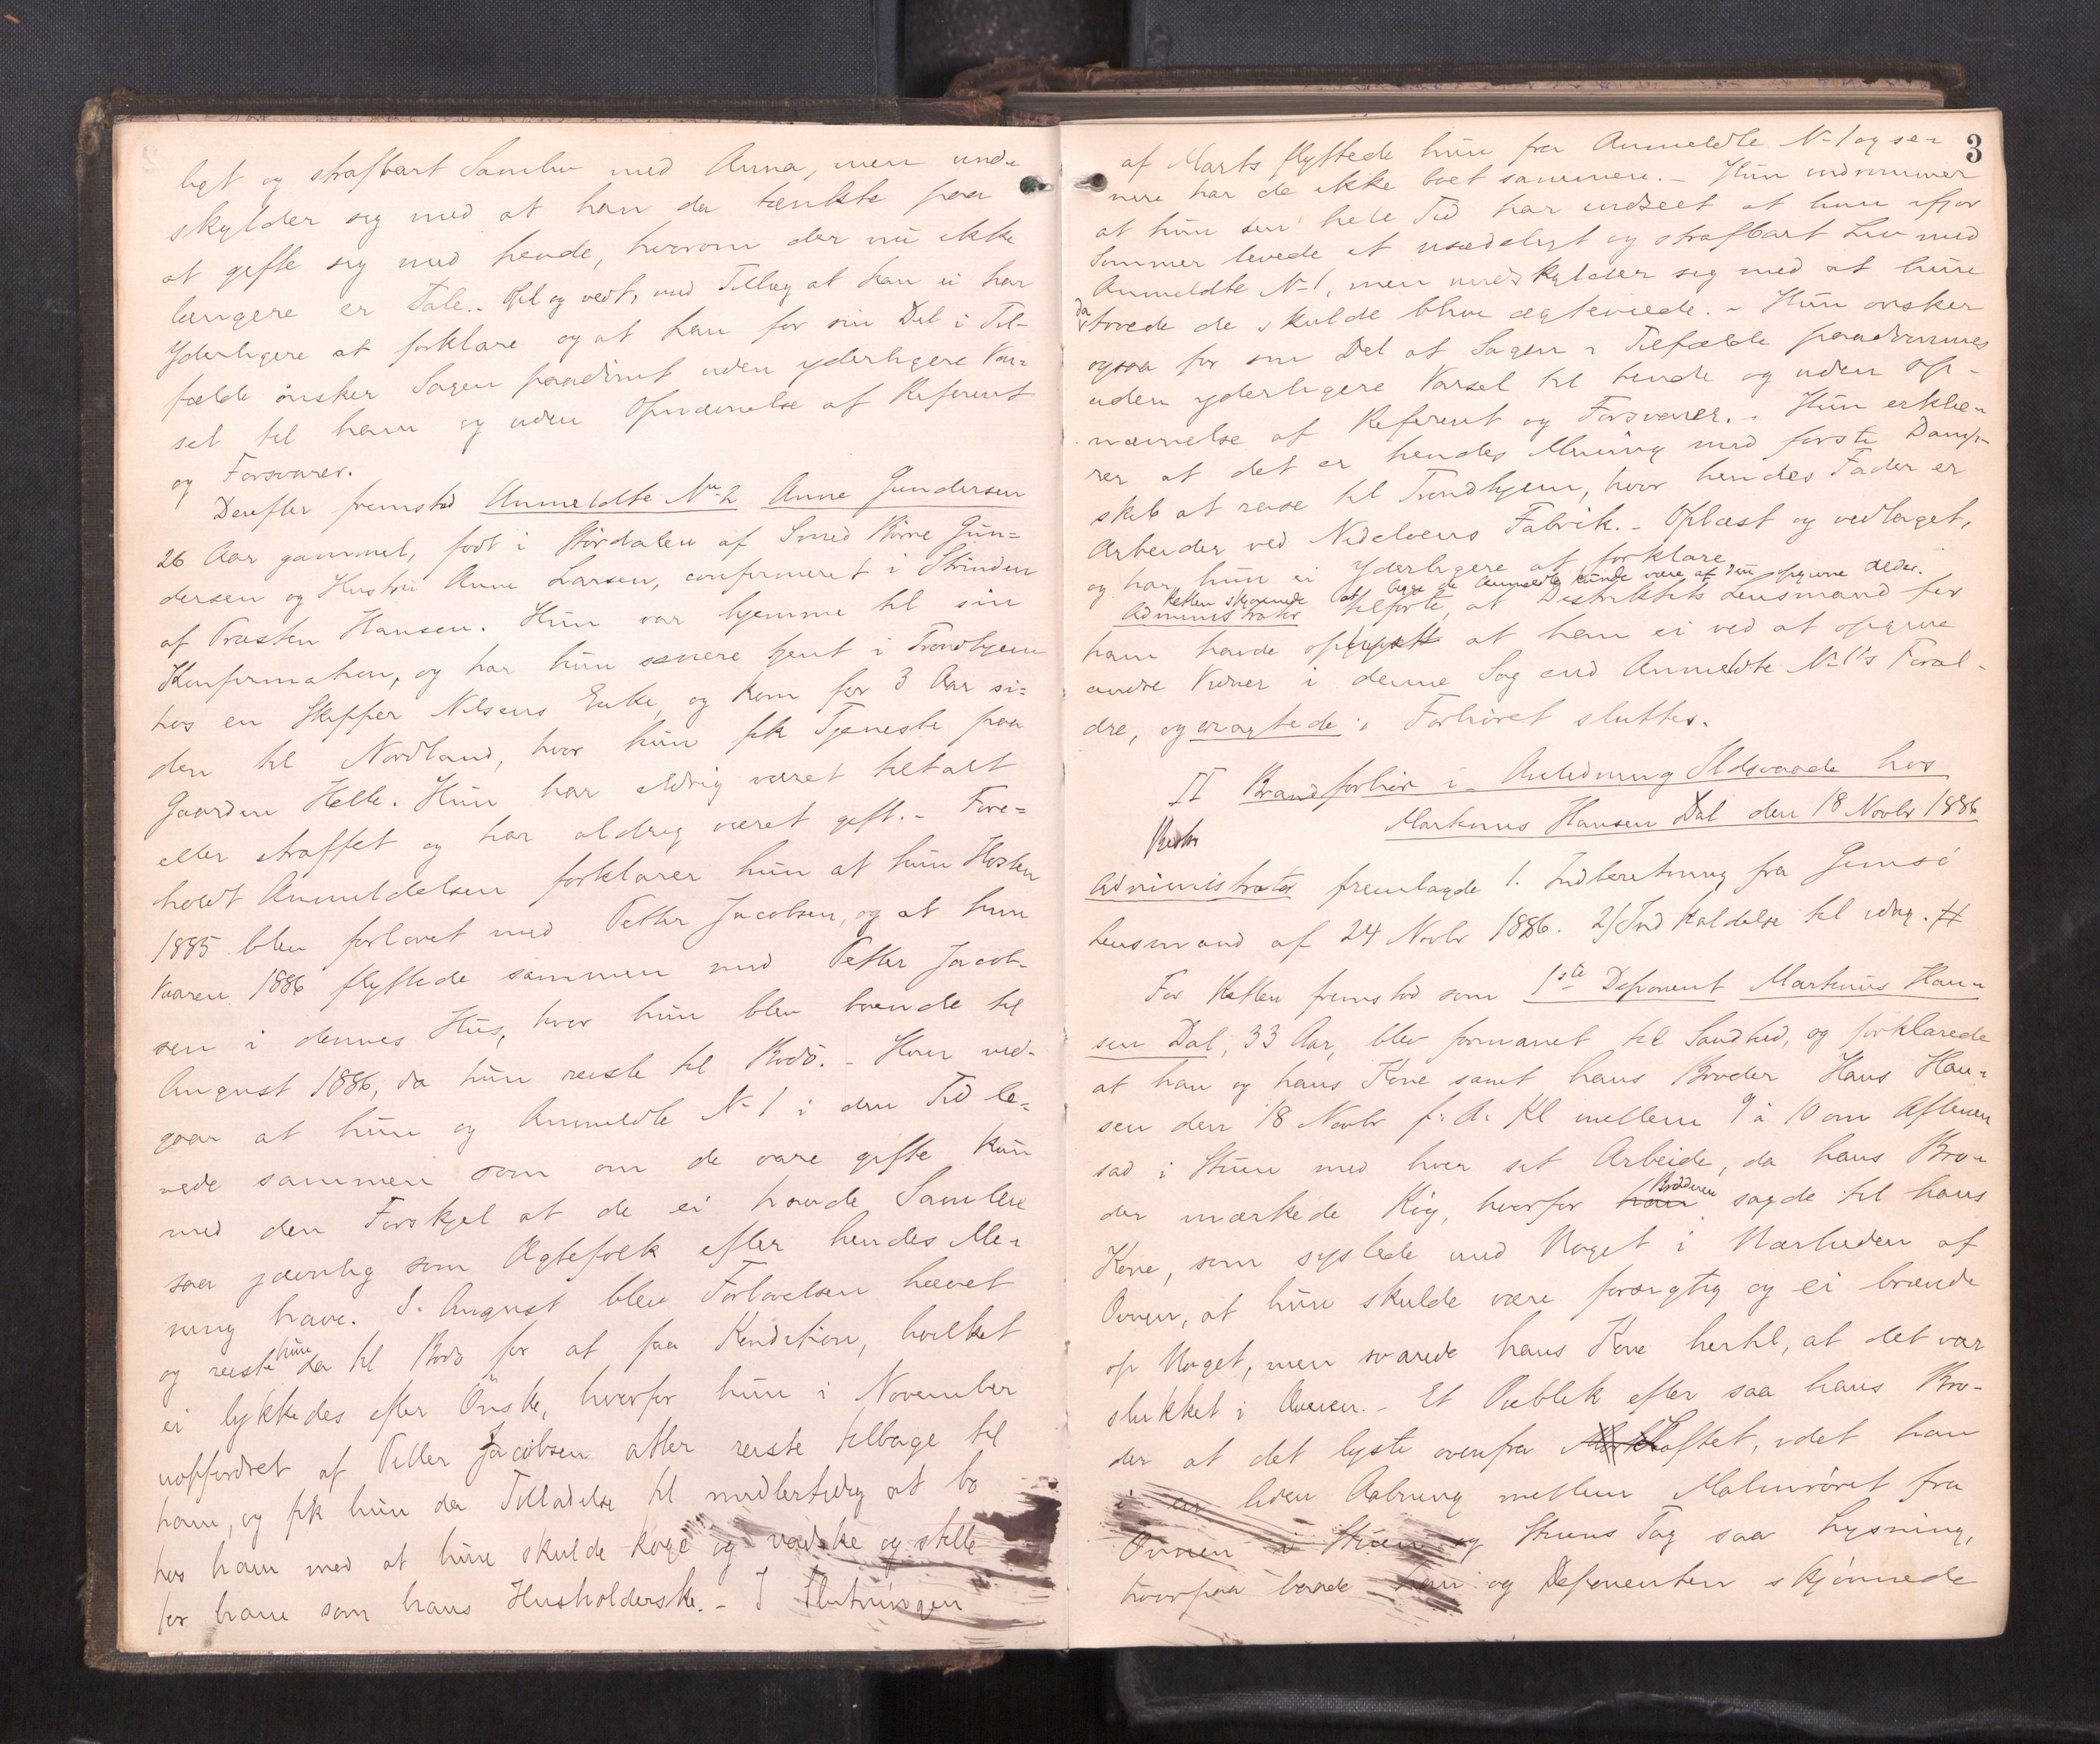 ligt og strafbart Samliv med Anna, men und-
skylder sig med at han da tænkte paa
at gifte sig med hende, hvorom der nu ikke
længere er Tale.- Opl og vedt, med Tillæg at han ei har
Yderligere at forklare og at han for sin Del i Til-
fælde ønsker Sagen paadømt uden yderligere Var-
sel til ham og uden Opnævnelse af Referent
og Forsvarer.
Derefter fremstod Anmeldte No 2 Anne Gundersen
26 Aar gammel, født i Størdalen af Smed Gun-
dersen og Hustru Anne Larsen, confirmeret i Strinden
af Præsten Hansen. Hun var hjemme til sin
Konfirmation, og har hun senere tjent i Trondhjem
hos en Skipper Nilsens Enke, og kom for 3 Aar si-
den til Nordland, hvor hun fik Tjeneste paa
Gaarden Helle. Hun har aldrig været tiltalt
eller straffet og har aldrig været gift.- Fore-
holdt Anmeldelsen forklarer hun at hun Høsten
1885 blev forlovet med Petter Jacobsen, og at hun
Vaaren 1886 flyttede sammen med Petter Jacob-
sen i dennes Hus, hvor hun blev boende til
August 1886, da hun reiste til Bodø.- Hun ved-
gaar at hun og Anmeldte No 1 i den Tid le-
vede sammen som om de vare gifte kun
med den Forskjel at de ei havde Samleie
saa jævnlig som Ægtefolk efter hendes Me-
ning have. I August blev Forlovelsen hævet
og reiste hun da til Bodø for at faa Kondition, hvilket
ei lykkedes efter Ønske, hvorfor hun i November
uopfordret af Petter Jacobsen atter reiste tilbage til
ham, og fik hun da Tilladelse til midlertidig at bo
hos ham med at hun skulde koge og vadske og stelle
for ham som hans Husholderske.- I Slutningen
3
af Marts flyttede hun fra Anmeldte No 1 og se-
nere har de ikke boet sammen.- Hun indrømmer
at hun den hele Tid har indseet at hun ifjor
Sommer levede et usædeligt og strafbart Liv med
Anmeldte No 1, men undskylder sig med at hun
da troede de skulde blive ægteviede.- Hun ønsker
ogsaa for sin Del at Sagen i Tilfælde paadømmes
uden yderligere Varsel til hende og uden Op-
nævnelse af Referent og Forsvarer.- Hun erklæ-
rer at det er hendes Mening med første Damp-
skib at reise til Trondhjem, hvor hendes Fader er
Arbeider ved Nidelvens Fabrik.- Oplæst og vedtaget,
og har hun ei yderligere at forklare
Retten skjønnede at begge de Anmeldte kunde være af den opgivne Alder.
Administrator tilførte, at Distriktets Lensmand for
ham havde oplyst at han ei ved at opgive
andre Vidner i denne Sag end Anmeldte No 1's Foræl-
dre, og eragtede: Forhøret sluttes.
II Brandforhør i Anledning Ildsvaade hos
Markus Hansen Dal den 18 Novbr 1886
Administrator fremlagde 1. Indberetning fra Gimsø
Lensmand af 24 Novbr 1886. 2/ Indkaldelse til idag. #
For Retten fremstod som 1ste Deponent Martinus Han-
sen Dal, 33 Aar, blev formanet til Sandhed, og forklarede
at han og hans Kone samt hans Broder Hans Han-
sen den 18 Novbr f. A. Kl mellem 9 à 10 om Aftenen
sad i Stuen med hver sit Arbeide, da hans Bro-
der mærkede Røg, hvorfor han Broderen sagde til hans
Kone, som syslede med Noget i Nærheden af
Ovnen, at hun skulde være forsigtig og ei brænde
op Noget, men svarede hans Kone hertil, at det var
slukket i Ovnen.- Et Øieblik efter saa hans Bro-
der at det lyste ovenfra Loftet, idet han
i en liden Aabning mellem Malmrøret fra
Ovnen i Stuen og Stuens Tag saa Lysning,
hvorpaa baade han og Deponenten skjønnede